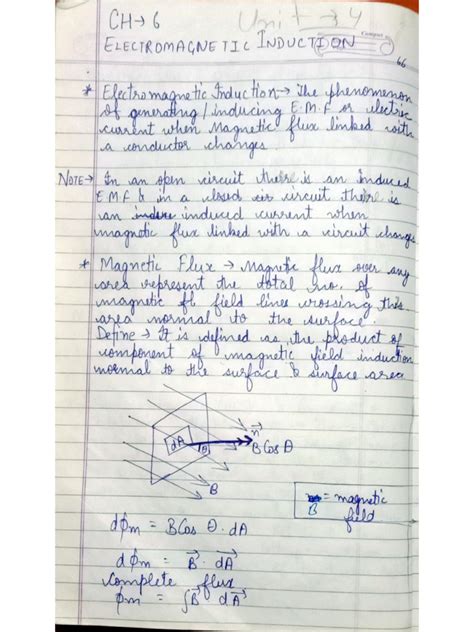 CH→6 Unit → 4
ELECTROMAGNETIC INDUCTION
Campus
66
* Electromagnetic Induction → The phenomenon
of generating / inducing E.M.F or electric
current when Magnetic flux linked with
a conductor changes.
NOTE→ In an open circuit there is an induced
E.M.F & in a closed cir circuit there is
an induce induced current when
magnetic flux linked with a circuit change
* Magnetic Flux → Magnetic flux over any
area represent the total no. of
magnetic fl field lines crossing this
area normal to the surface.
Define → It is defined as the product of
component of magnetic field induction
normal to the surface & surface area
dA θ n B Cos θ
B
= magnetic
B field
dϕm = BCos θ. dA
dϕm = B⃗. dA⃗
Complete flux
ϕm = ∫B⃗ dA⃗